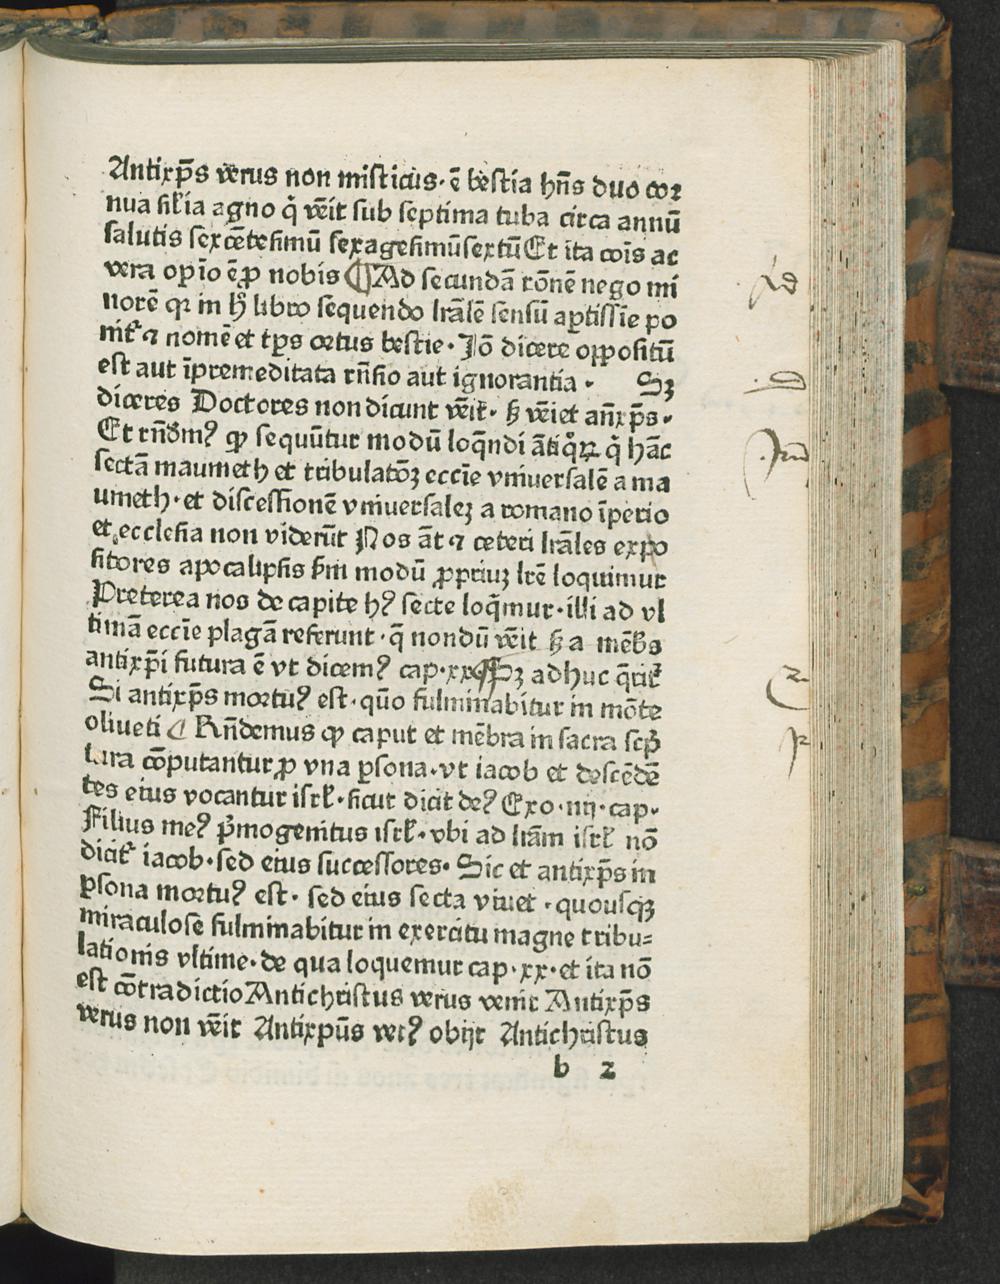 Antixp̄s verus non misticus· ē bestia hñs duo cor
nua sił'ia agno q̇ vēit sub septima tuba circa annū
salutis sexcētesimū sexagesimūsextū Et ita cōis ac
vera opīo ē ꝓ nobis ¶ Ad secundā rōnē nego mi
norē qꝛ in hͦ libro sequendo lrālē sensū aꝑtissīe po
nit̄ ⁊ nomē et tp̄s ortus bestie· Jō dicere oppositū
est aut īpremeditata rñsio aut ignorantia· Sꝫ
diceres Doctores non dicunt vēit· sꝫ vēiet añxp̄s·
Et rñdm̄ꝰ ꝙ sequūtur modū loq̄ndi ātiq̊ꝝ q̇ hāc
sectā maumeth et tribulatōꝫ eccīe vniuersalē a ma
umeth· et discessionē vniuersaleꝫ a romano īperio
et ecclesia non viderūt Nos āt ⁊ ceteri lrāles expo
sitores apocalipsis sm̄ modū ꝓpriuꝫ lrē loquimur
Preterea nos de capite hꝰ secte loq̄mur· illi ad vl
timā eccīe plagā referunt· q̄ nondū vēit sꝫ a mēb̄s
antixp̄i futura ē vt dicemꝰ cap·xx ¶ Sꝫ adhuc q̄rit̄
Si antixp̄s mortuꝰ est· quō fulminabitur in mōte
oliueti ¶ Rñdemus ꝙ caput et mēbra in sacra scp̄
tura cōputantur ꝓ vna ꝑsona· vt iacob et descēdē
tes eius vocantur isrł· sicut dicit deꝰ Exo·iiij·cap·
Filius meꝰ p̄mogenitus isrł· vbi ad lrām isrł nō
dicit̄ iacob· sed eius successores· Sic et antixp̄s in
ꝑsona mortuꝰ est· sed eius secta viuet· quousqꝫ
miraculose fulminabitur in exercitu magne tribu⸗
lationis vltime· de qua loquemur cap·xx· et ita nō
est cōtradictio Antichristus verus venit Antixp̄s
verus non vēit Antixpūs verꝰ obijt Antichristus
b 2